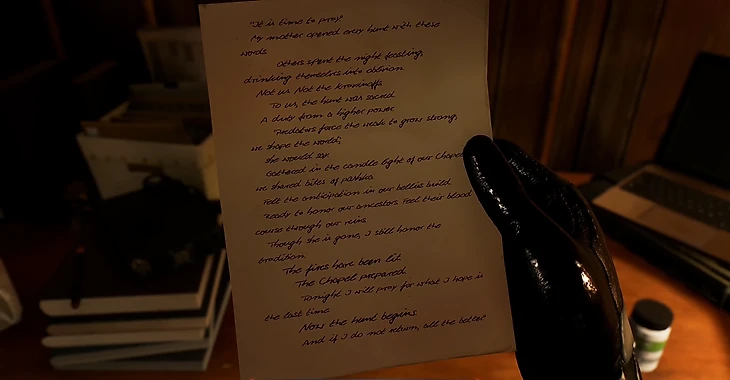 "It is time to pray"
My mother opened every hunt with these
words
Others spent the night feasting,
drinking themselves into oblivion.
Not us. Not the
To us, the hunt was sacred
A duty from a higher power
"Predators force the weak to grow strong,
we shape the world,"
she would say.
Gathered in the candle light of our Chapel
we shared bites of
Felt the anticipation in our bellies build.
Ready to honor our ancestors. Feel their blood
course through our veins.
Though she is gone, I still honor the
tradition.
The fires have been lit.
The Chapel prepared.
Tonight I will pray for what I hope is
the last time.
Now the hunt begins.
And if I do not return, all the better